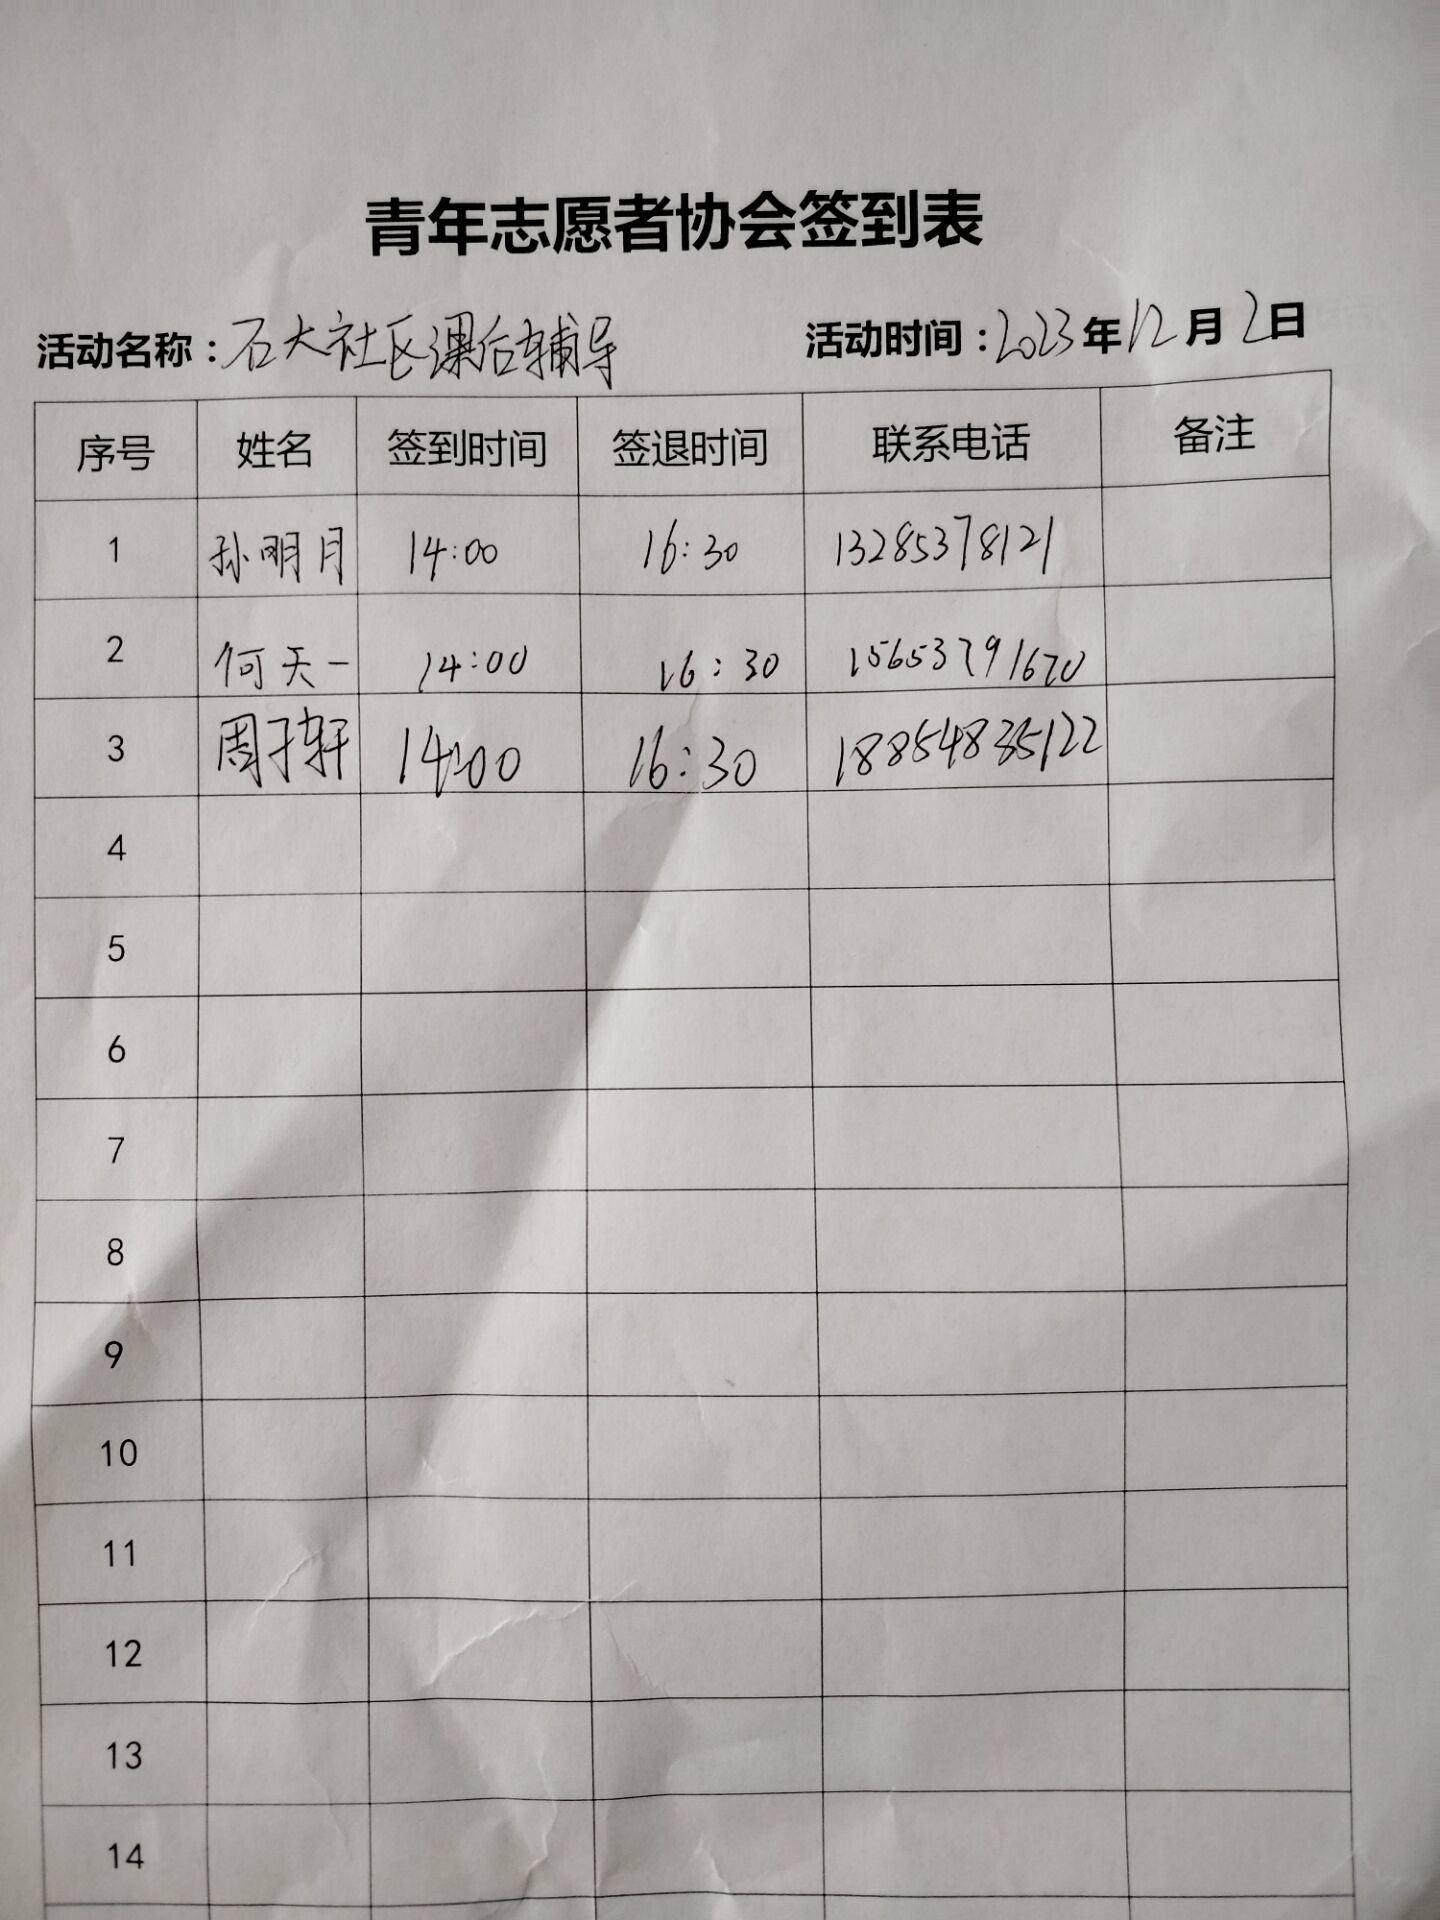 青年志愿者协会签到表
活动名称：石大社区课后辅导 活动时间：2023年12月2日
序号 姓名 签到时间 签退时间 联系电话 备注
1 孙明月 14:00 16:30 13285378121
2 何天一 14:00 16:30 15653791670
3 周子轩 14:00 16:30 18854835122
4
5
6
7
8
9
10
11
12
13
14